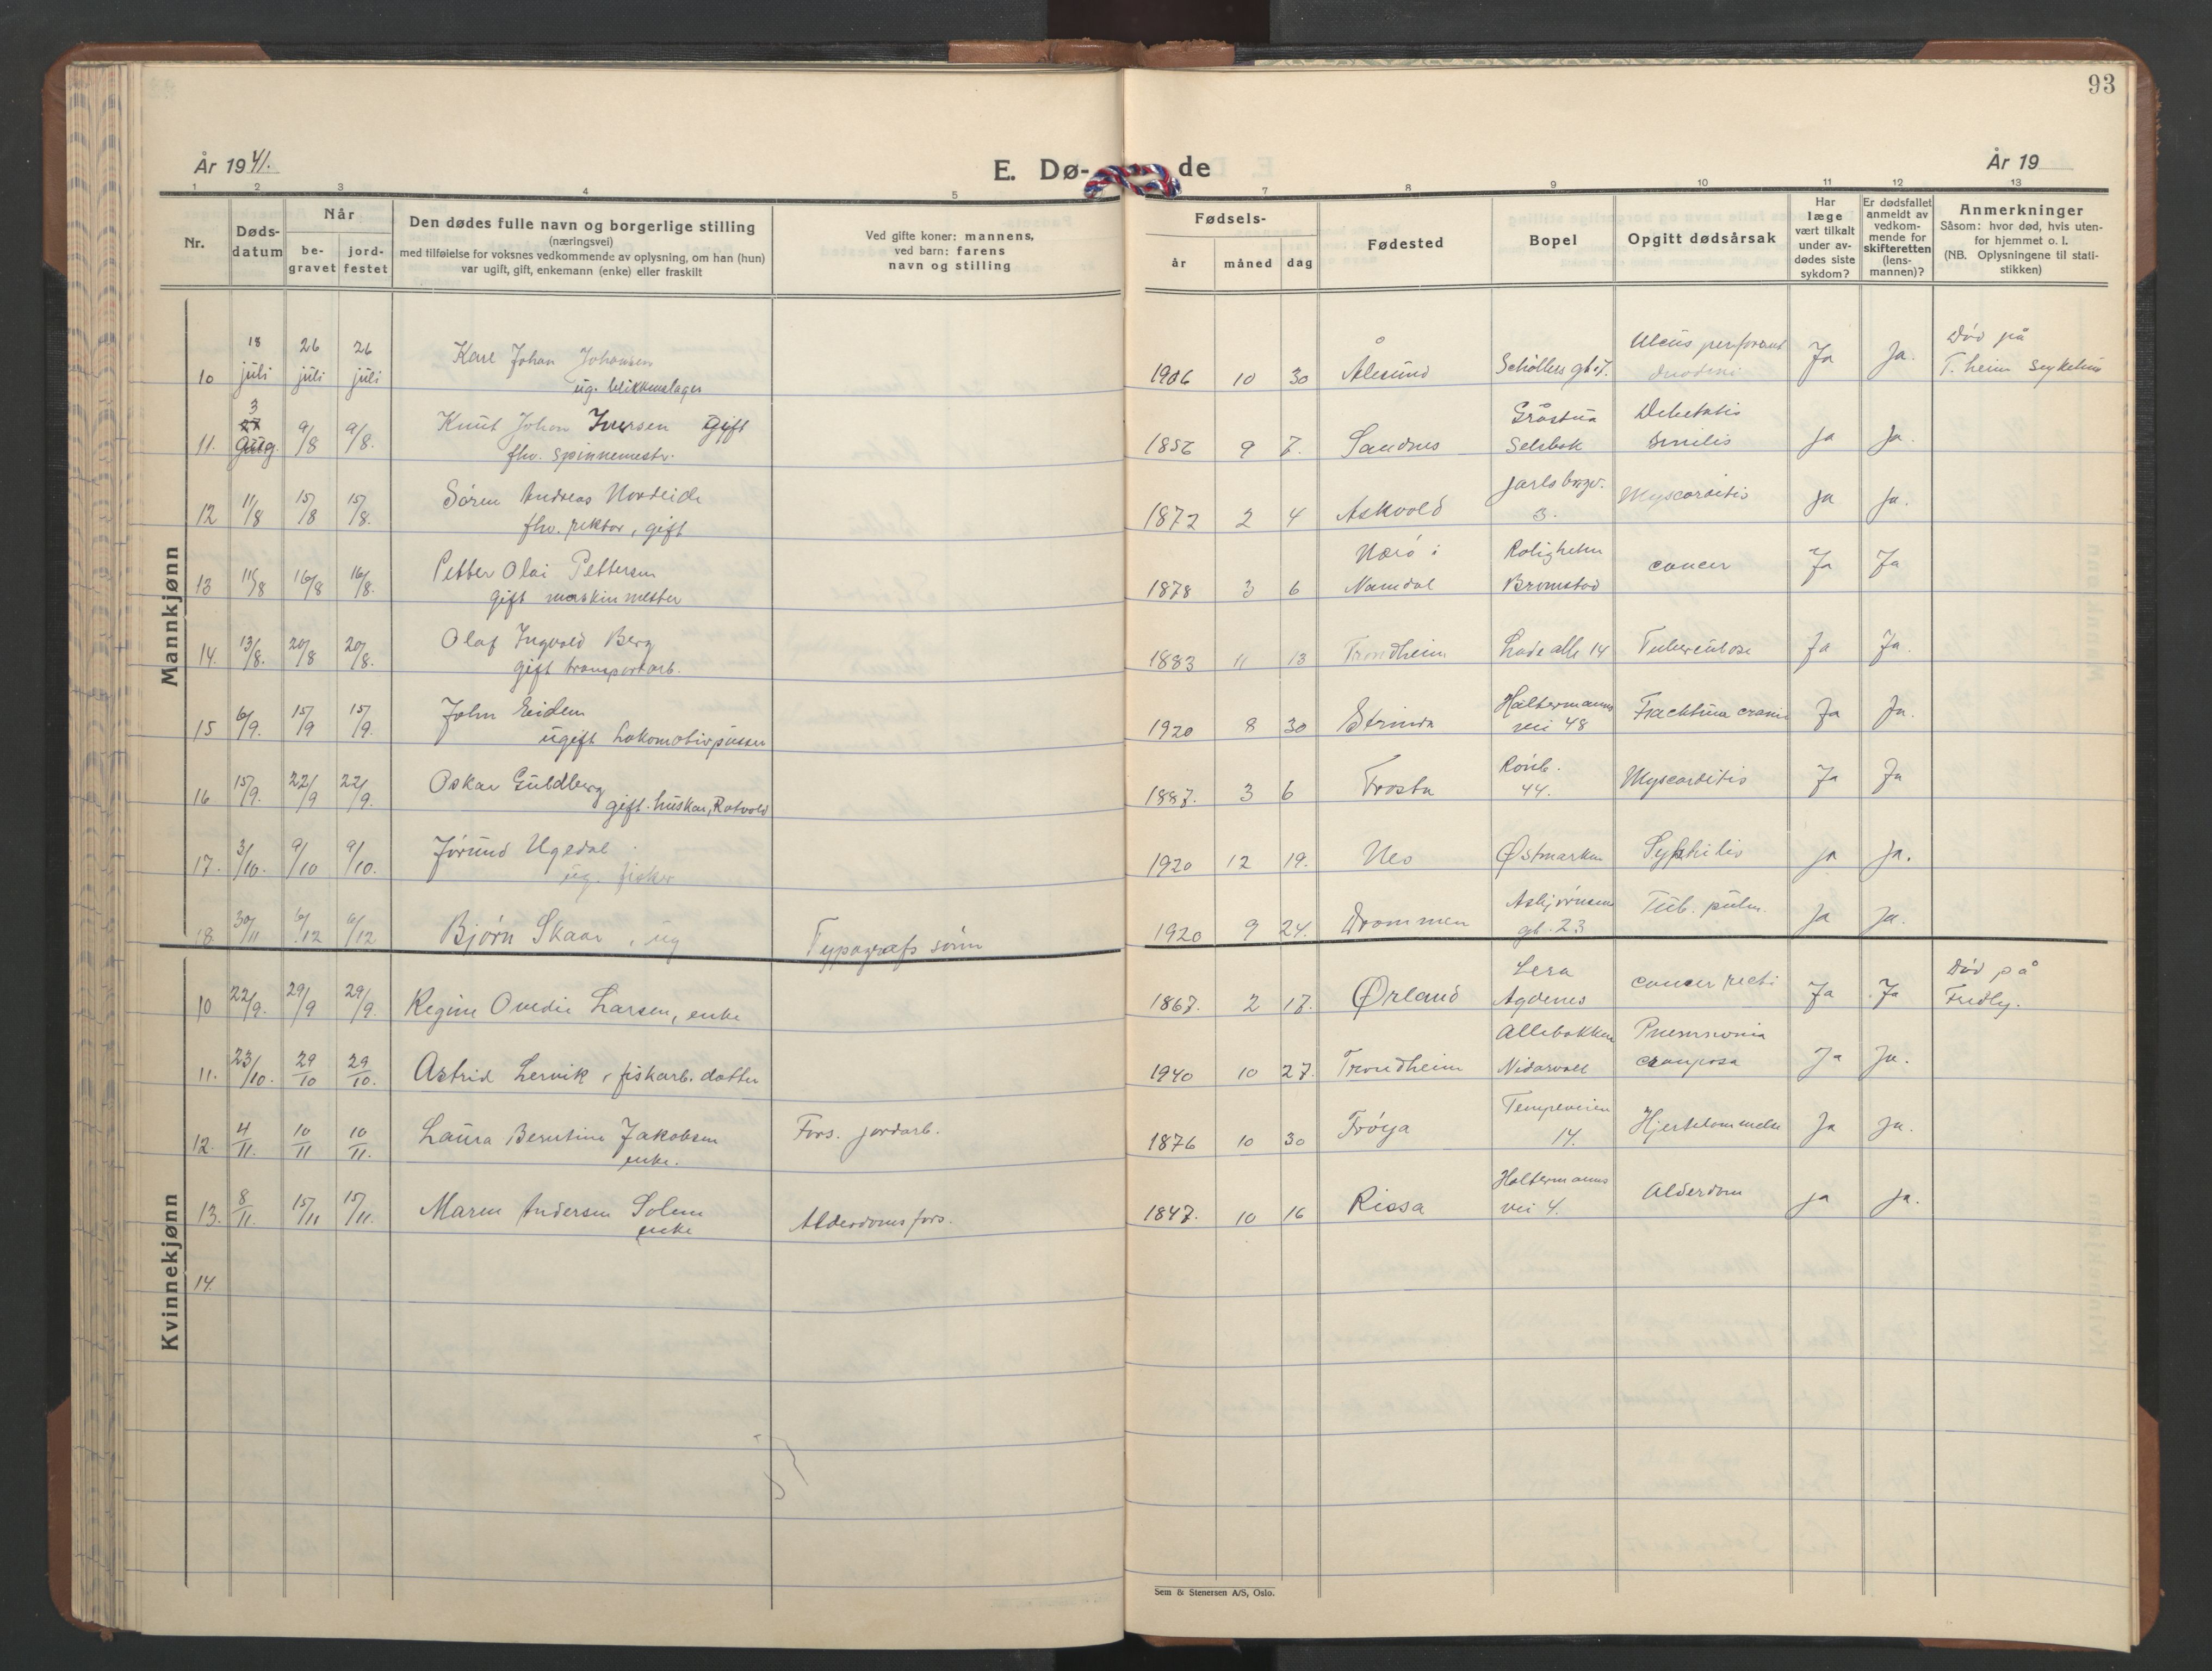 93
År 1941.
E. Dø- de
År 19
1 2 3 4 5 7 8 9 10 11 12 13
Nr.
Døds-
datum
Når
be-
gravet
jord-
festet
Den dødes fulle navn og borgerlige stilling
(næringsvei)
med tilføielse for voksnes vedkommende av oplysning, om han (hun)
var ugift, gift, enkemann (enke) eller fraskilt
Ved gifte koner: mannens,
ved barn: farens
navn og stilling
Fødsels-
år
måned
dag
Fødested
Bopel
Opgitt dødsårsak
Har
læge
vært tilkalt
under av-
dødes siste
sykdom?
Er dødsfallet
anmeldt av
vedkom-
mende for
skifteretten
(lens-
mannen)?
Anmerkninger
Såsom: hvor død, hvis uten-
for hjemmet o. l.
(NB. Oplysningene til stati-
stikken)
Mannkjønn
18 26 26 Karl Johan Johansen Ulcus perforand Død på
10 juli juli juli ug. blikkenslager 1906 10 30 Ålesund Schøllers gt 7. duodeni Ja Ja. T.heim sykehus
3 Knut Johan Iversen gift Gråstua Debetatis
11. aug. 9/8 9/8. fhv. spinnemestr. 1856 9 7. Sandnes Selsbak Ja Ja.
Søren Andreas Nordeide Jarlsborgv.
12 11/8 15/8 15/8. fhv. rektor, gift 1872 2 4 Askvold 3. Myocarditis Ja Ja.
Petter Olai Pettersen Nærö i Roligheten
13 11/8 16/8 16/8. gift maskinmester 1878 3 6 Namdal Bromstad cancer Ja Ja
Olaf Ingvald Berg
14. 13/8. 20/8 20/8. gift transportarb. 1883 11 13 Trondheim Lade alle 14 Tuberculose Ja Ja.
John Eidem Haltermanns
15 6/9. 15/9 15/9. ugift Lokomotivpusser 1920 8 30 Strinda vei 48 Fracktura cranii Ja Ja.
Oskar Guldberg Rönb.
16. 15/9. 22/9 22/9. gift. huskar, Rotvold 1887. 3 6 Frosta 44. Myocarditis Ja Ja
Jörund Ugedal
17. 3/10. 9/10 9/10. ug. fisker 1920 12 19. Nes Østmarken Syphilis Ja Ja.
Asbjørnsens
18. 30/11 6/12 6/12 Bjørn Skaar, ug Typografs sönn 1920 9 24. Drammen gt. 23 Tub. pulm. Ja Ja.
Kvinnekjønn
Lera Død på
10 22/9. 29/9 29/9. Regine Ovedie Larsen, enke 1867. 2 17. Ørland Agdenes cancer recti Ja Ja Fredly.
Allebakken Pneumonia
11. 23/10. 29/10 29/10. Astrid Lervik, fiskarb. datter 1940 10 27. Trondheim Nidarvoll crouposa Ja Ja.
Tempeveien
12. 4/11. 10/11 10/11. Laura Berntine Jakobsen Fors. jordarb. 1876 10 30 Frøya 14. Hjertelammelse Ja Ja.
enke.
Haltermanns
13. 8/11. 15/11 15/11. Maren Andersen Solem Alderdoms fors. 1847. 10 16 Rissa vei 4. Alderdom Ja Ja.
enke
14.
Sem & Stenersen A/S, Oslo.